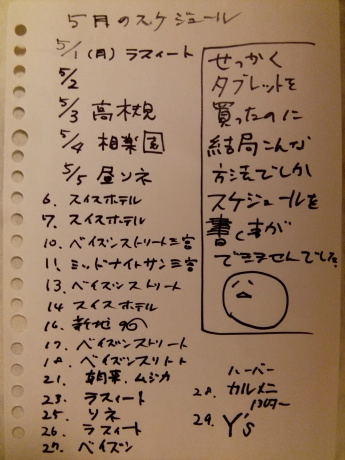 5月のスケジュール
5/1(月)ラスィート
5/2
5/3 高木規
5/4 相楽園
5/5 昼ソネ
6. スイスホテル
7. スイスホテル
10. ベイズンストリート三宮
11. ミッドナイトサン三宮
13. ベイズンストリート
14 スイスホテル
16. 新地
17. ベイズンストリート
18. ベイズンストリート
21. 朝華.ムジカ
23. ラスィート
25. ソネ
26. ラスィート
27. ベイズン
ハーバー
28. カルメニ
24. Y's
せっかく
タブレットを
買ったのに
結局こんな
方法でしか
スケジュールを
書く事が
できませんでした。